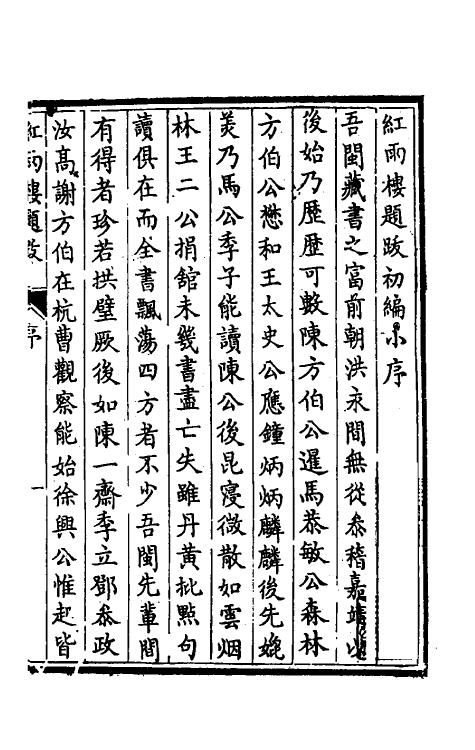 紅雨樓題跋初編小序
吾閩藏書之富前朝洪永間無從叅稽嘉靖以
後始乃歷歷可數陳方伯公暹馬恭敏公森林
方伯公懋和王太史公應鐘炳炳麟麟後先媲
美乃馬公季子能讀陳公後昆寖微散如雲烟
林王二公捐舘未幾書盡亡失雖丹黃批點句
讀俱在而全書飄蕩四方者不少吾閩先輩間
有得者珍若拱璧厥後如陳一齋季立鄧叅政
汝高謝方伯在杭曹觀察能始徐興公惟起皆
紅雨樓題跋
序
一